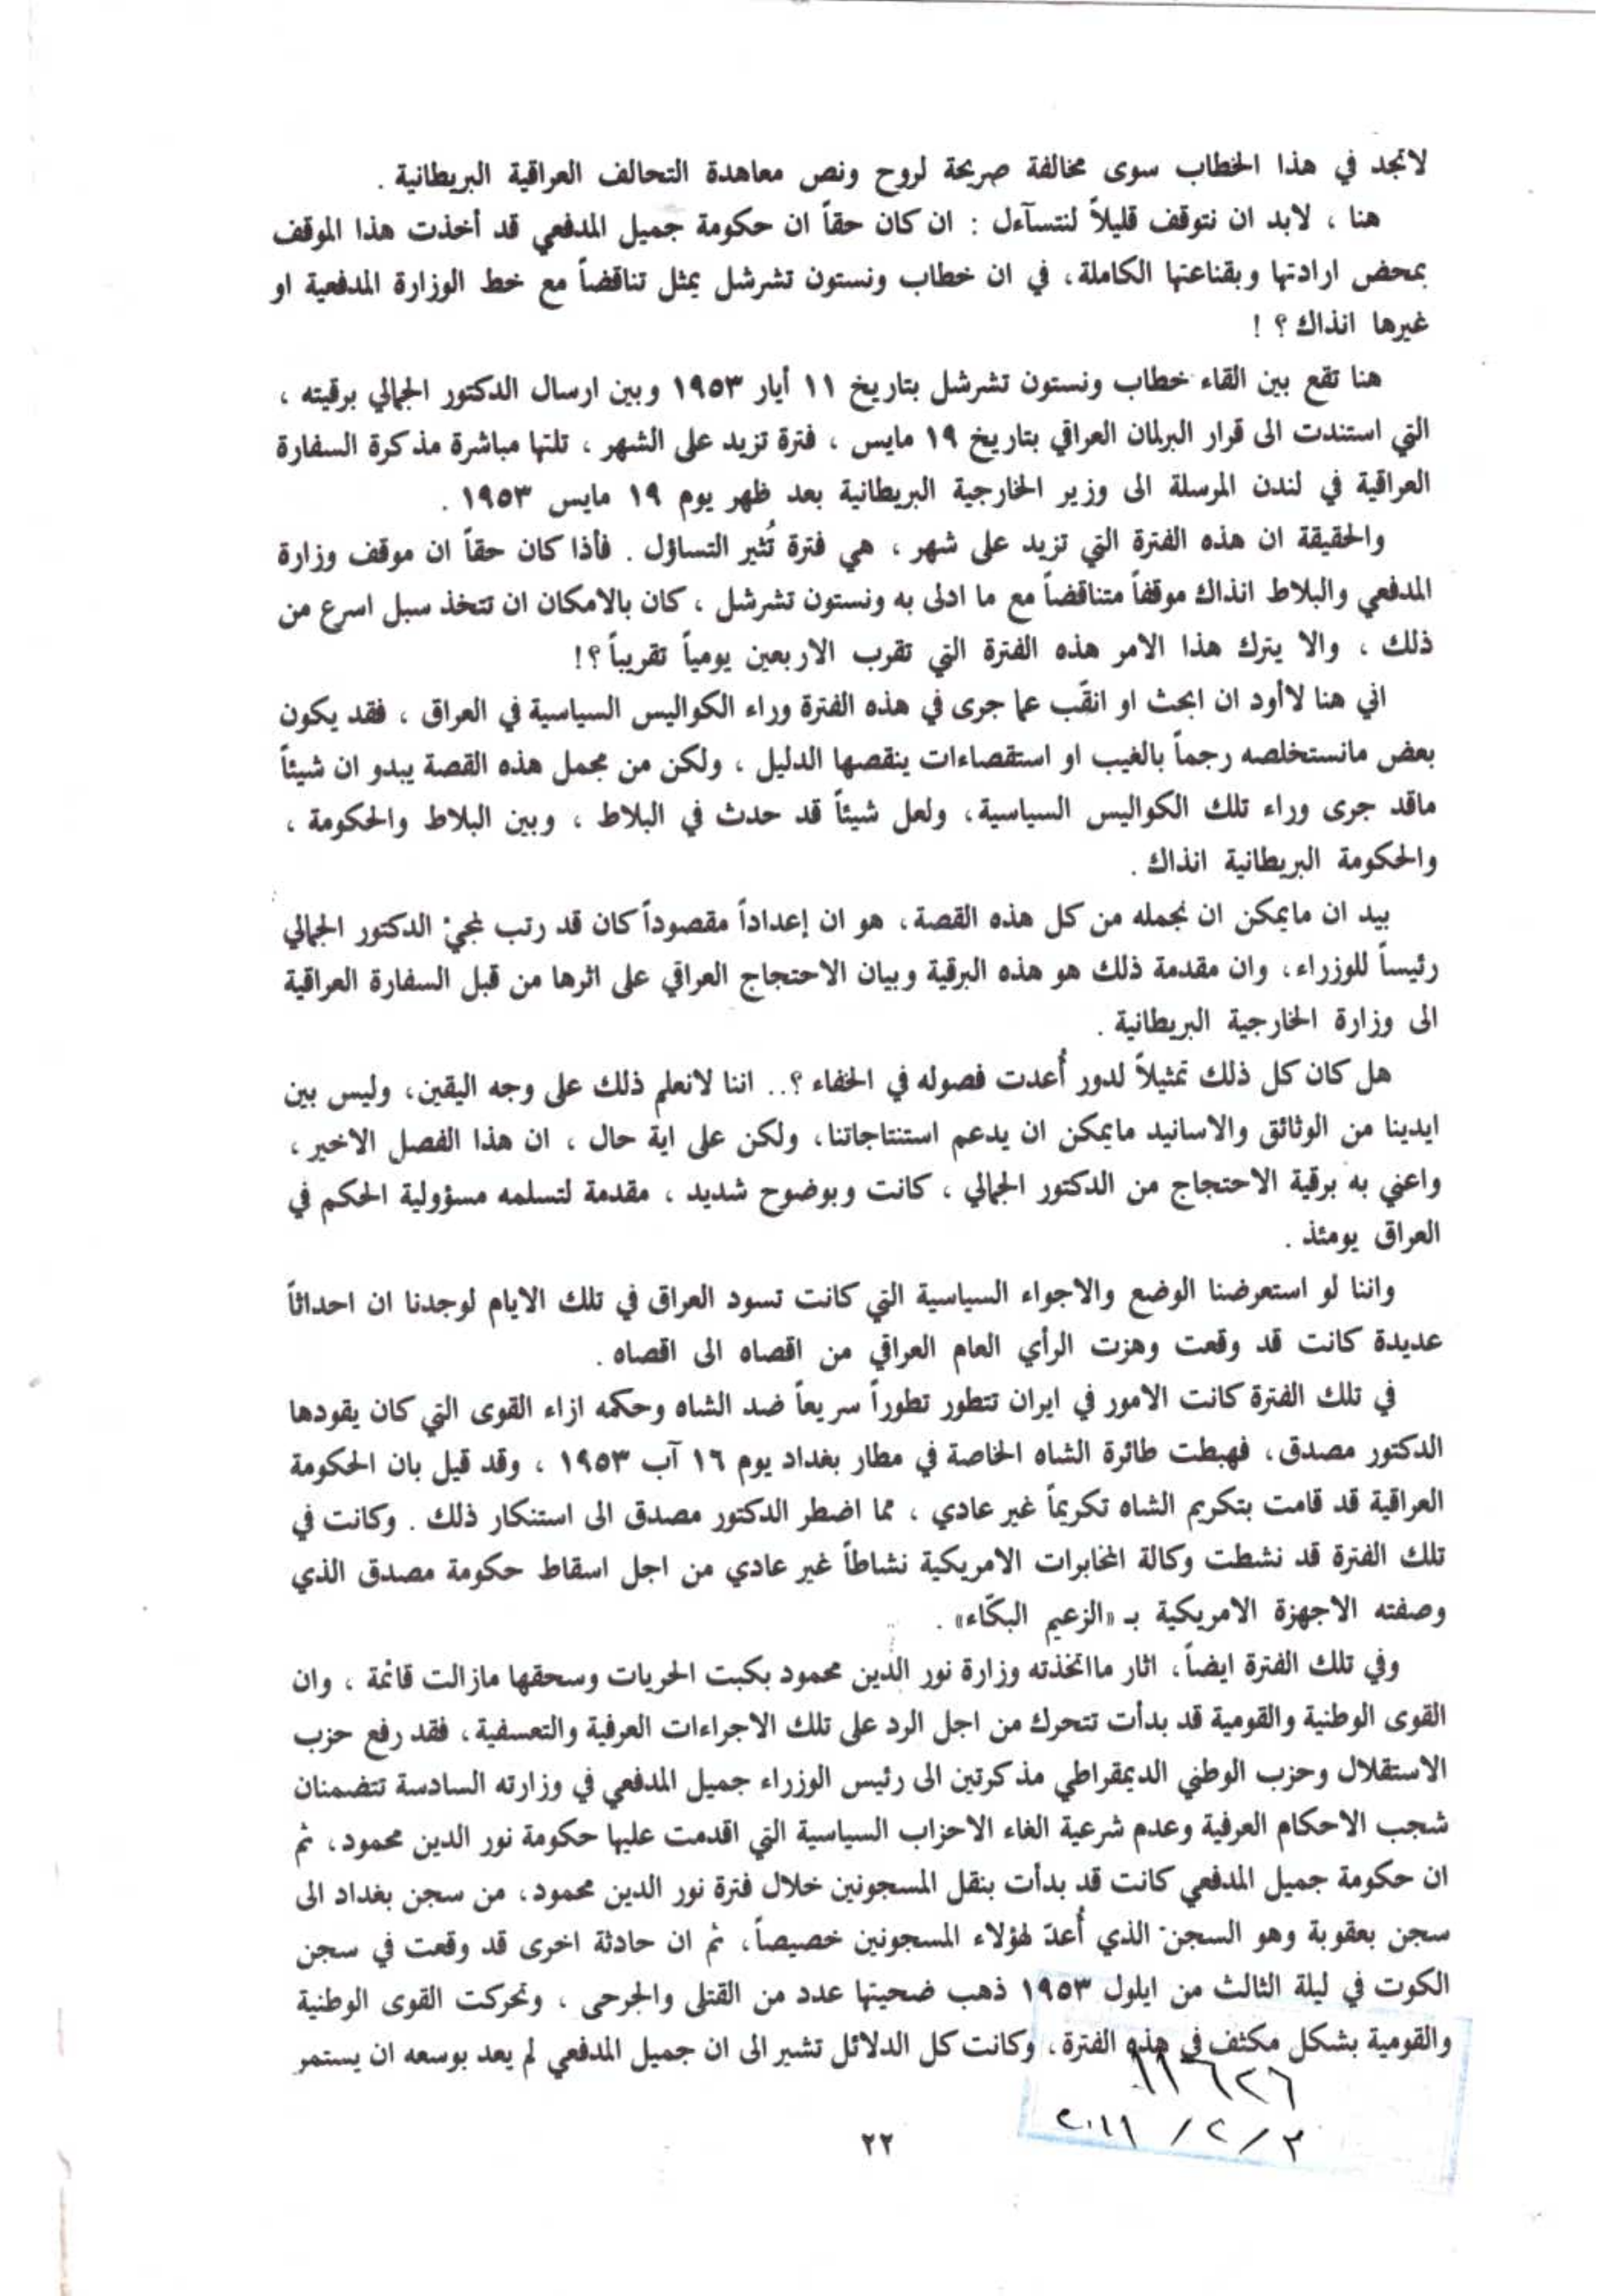 لاتجد في هذا الخطاب سوى مخالفة صريحة لروح ونص معاهدة التحالف العراقية البريطانية .
هنا ، لابد ان نتوقف قليلاً لنتسآءل : ان كان حقاً ان حكومة جميل المدفعي قد أخذت هذا الموقف
بمحض ارادتها وبقناعتها الكاملة، في ان خطاب ونستون تشرشل يمثل تناقضاً مع خط الوزارة المدفعية او
غيرها انذاك ؟ !
هنا تقع بين القاء خطاب ونستون تشرشل بتاريخ ١١ أيار ١٩٥٣ وبين ارسال الدكتور الجمالي برقيته ،
التي استندت الى قرار البرلمان العراقي بتاريخ ١٩ مايس ، فترة تزيد على الشهر ، تلتها مباشرة مذكرة السفارة
العراقية في لندن المرسلة الى وزير الخارجية البريطانية بعد ظهر يوم ١٩ مايس ١٩٥٣ .
والحقيقة ان هذه الفترة التي تزيد على شهر ، هي فترة تُثير التساؤل . فأذا كان حقاً ان موقف وزارة
المدفعي والبلاط انذاك موقفاً متناقضاً مع ما ادلى به ونستون تشرشل ، كان بالامكان ان تتخذ سبل اسرع من
ذلك ، والا يترك هذا الامر هذه الفترة التي تقرب الاربعين يومياً تقريباً ؟!
اني هنا لاأود ان ابحث او انقّب عما جرى في هذه الفترة وراء الكواليس السياسية في العراق ، فقد يكون
بعض مانستخلصه رجماً بالغيب او استقصاءات ينقصها الدليل ، ولكن من مجمل هذه القصة يبدو ان شيئاً
ماقد جرى وراء تلك الكواليس السياسية، ولعل شيئاً قد حدث في البلاط ، وبين البلاط والحكومة ،
والحكومة البريطانية انذاك .
بيد ان مايمكن ان نجمله من كل هذه القصة، هو ان إعداداً مقصوداً كان قد رتب لمجيْ الدكتور الجمالي
رئيساً للوزراء، وان مقدمة ذلك هو هذه البرقية وبيان الاحتجاج العراقي على اثرها من قبل السفارة العراقية
الى وزارة الخارجية البريطانية .
هل كان كل ذلك تمثيلاً لدور أُعدت فصوله في الخفاء ؟.. اننا لانعلم ذلك على وجه اليقين، وليس بين
ايدينا من الوثائق والاسانيد مايمكن ان يدعم استنتاجاتنا، ولكن على اية حال ، ان هذا الفصل الاخير ،
واعني به برقية الاحتجاج من الدكتور الجمالي ، كانت وبوضوح شديد ، مقدمة لتسلمه مسؤولية الحكم في
العراق يومئذ .
واننا لو استعرضنا الوضع والاجواء السياسية التي كانت تسود العراق في تلك الايام لوجدنا ان احداثاً
عديدة كانت قد وقعت وهزت الرأي العام العراقي من اقصاه الى اقصاه .
في تلك الفترة كانت الامور في ايران تتطور تطوراً سريعاً ضد الشاه وحكمه ازاء القوى التي كان يقودها
الدكتور مصدق، فهبطت طائرة الشاه الخاصة في مطار بغداد يوم ١٦ آب ١٩٥٣ ، وقد قيل بان الحكومة
العراقية قد قامت بتكريم الشاه تكريماً غير عادي ، مما اضطر الدكتور مصدق الى استنكار ذلك . وكانت في
تلك الفترة قد نشطت وكالة المخابرات الامريكية نشاطاً غير عادي من اجل اسقاط حكومة مصدق الذي
وصفته الاجهزة الامريكية بـ «الزعيم البكّاء» .
وفي تلك الفترة ايضاً، اثار مااتخذته وزارة نور الدين محمود بكبت الحريات وسحقها مازالت قائمة ، وان
القوى الوطنية والقومية قد بدأت تتحرك من اجل الرد على تلك الاجراءات العرفية والتعسفية، فقد رفع حزب
الاستقلال وحزب الوطني الديمقراطي مذكرتين الى رئيس الوزراء جميل المدفعي في وزارته السادسة تتضمنان
شجب الاحكام العرفية وعدم شرعية الغاء الاحزاب السياسية التي اقدمت عليها حكومة نور الدين محمود، ثم
ان حكومة جميل المدفعي كانت قد بدأت بنقل المسجونين خلال فترة نور الدين محمود، من سجن بغداد الى
سجن بعقوبة وهو السجن الذي أُعدّ لهؤلاء المسجونين خصيصاً، ثم ان حادثة اخرى قد وقعت في سجن
الكوت في ليلة الثالث من ايلول ١٩٥٣ ذهب ضحيتها عدد من القتلى والجرحى ، وتحركت القوى الوطنية
والقومية بشكل مكثف في هذه الفترة، وكانت كل الدلائل تشير الى ان جميل المدفعي لم يعد بوسعه ان يستمر
١١٦٢٦
٢٠١١ / ٢ / ٣
٢٢